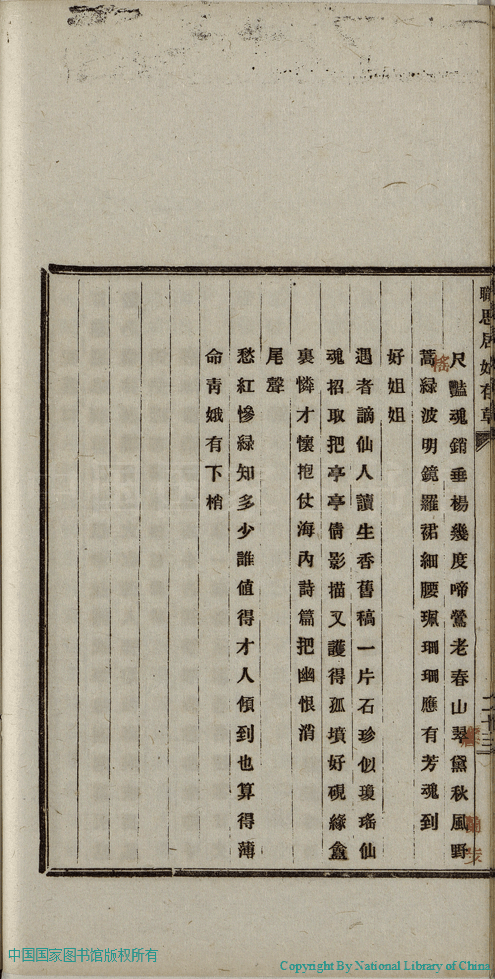 職思居
尺豔魂銷垂楊幾度啼鶯老春山翠黛秋風野
蒿綠波明鏡羅裙細腰珮珊珊應有芳魂到
好姐姐
遇者謫仙人讀生香舊稿一片石珍似瓊瑤仙
魂招取把亭亭倩影描又護得孤墳好硯緣龕
裏憐才懷抱仗海內詩篇把幽恨消
尾聲
愁紅慘綠知多少誰值得才人傾到也算得薄
命青娥有下梢
二十三
中国国家图书馆版权所有
Copyright By National Library of China